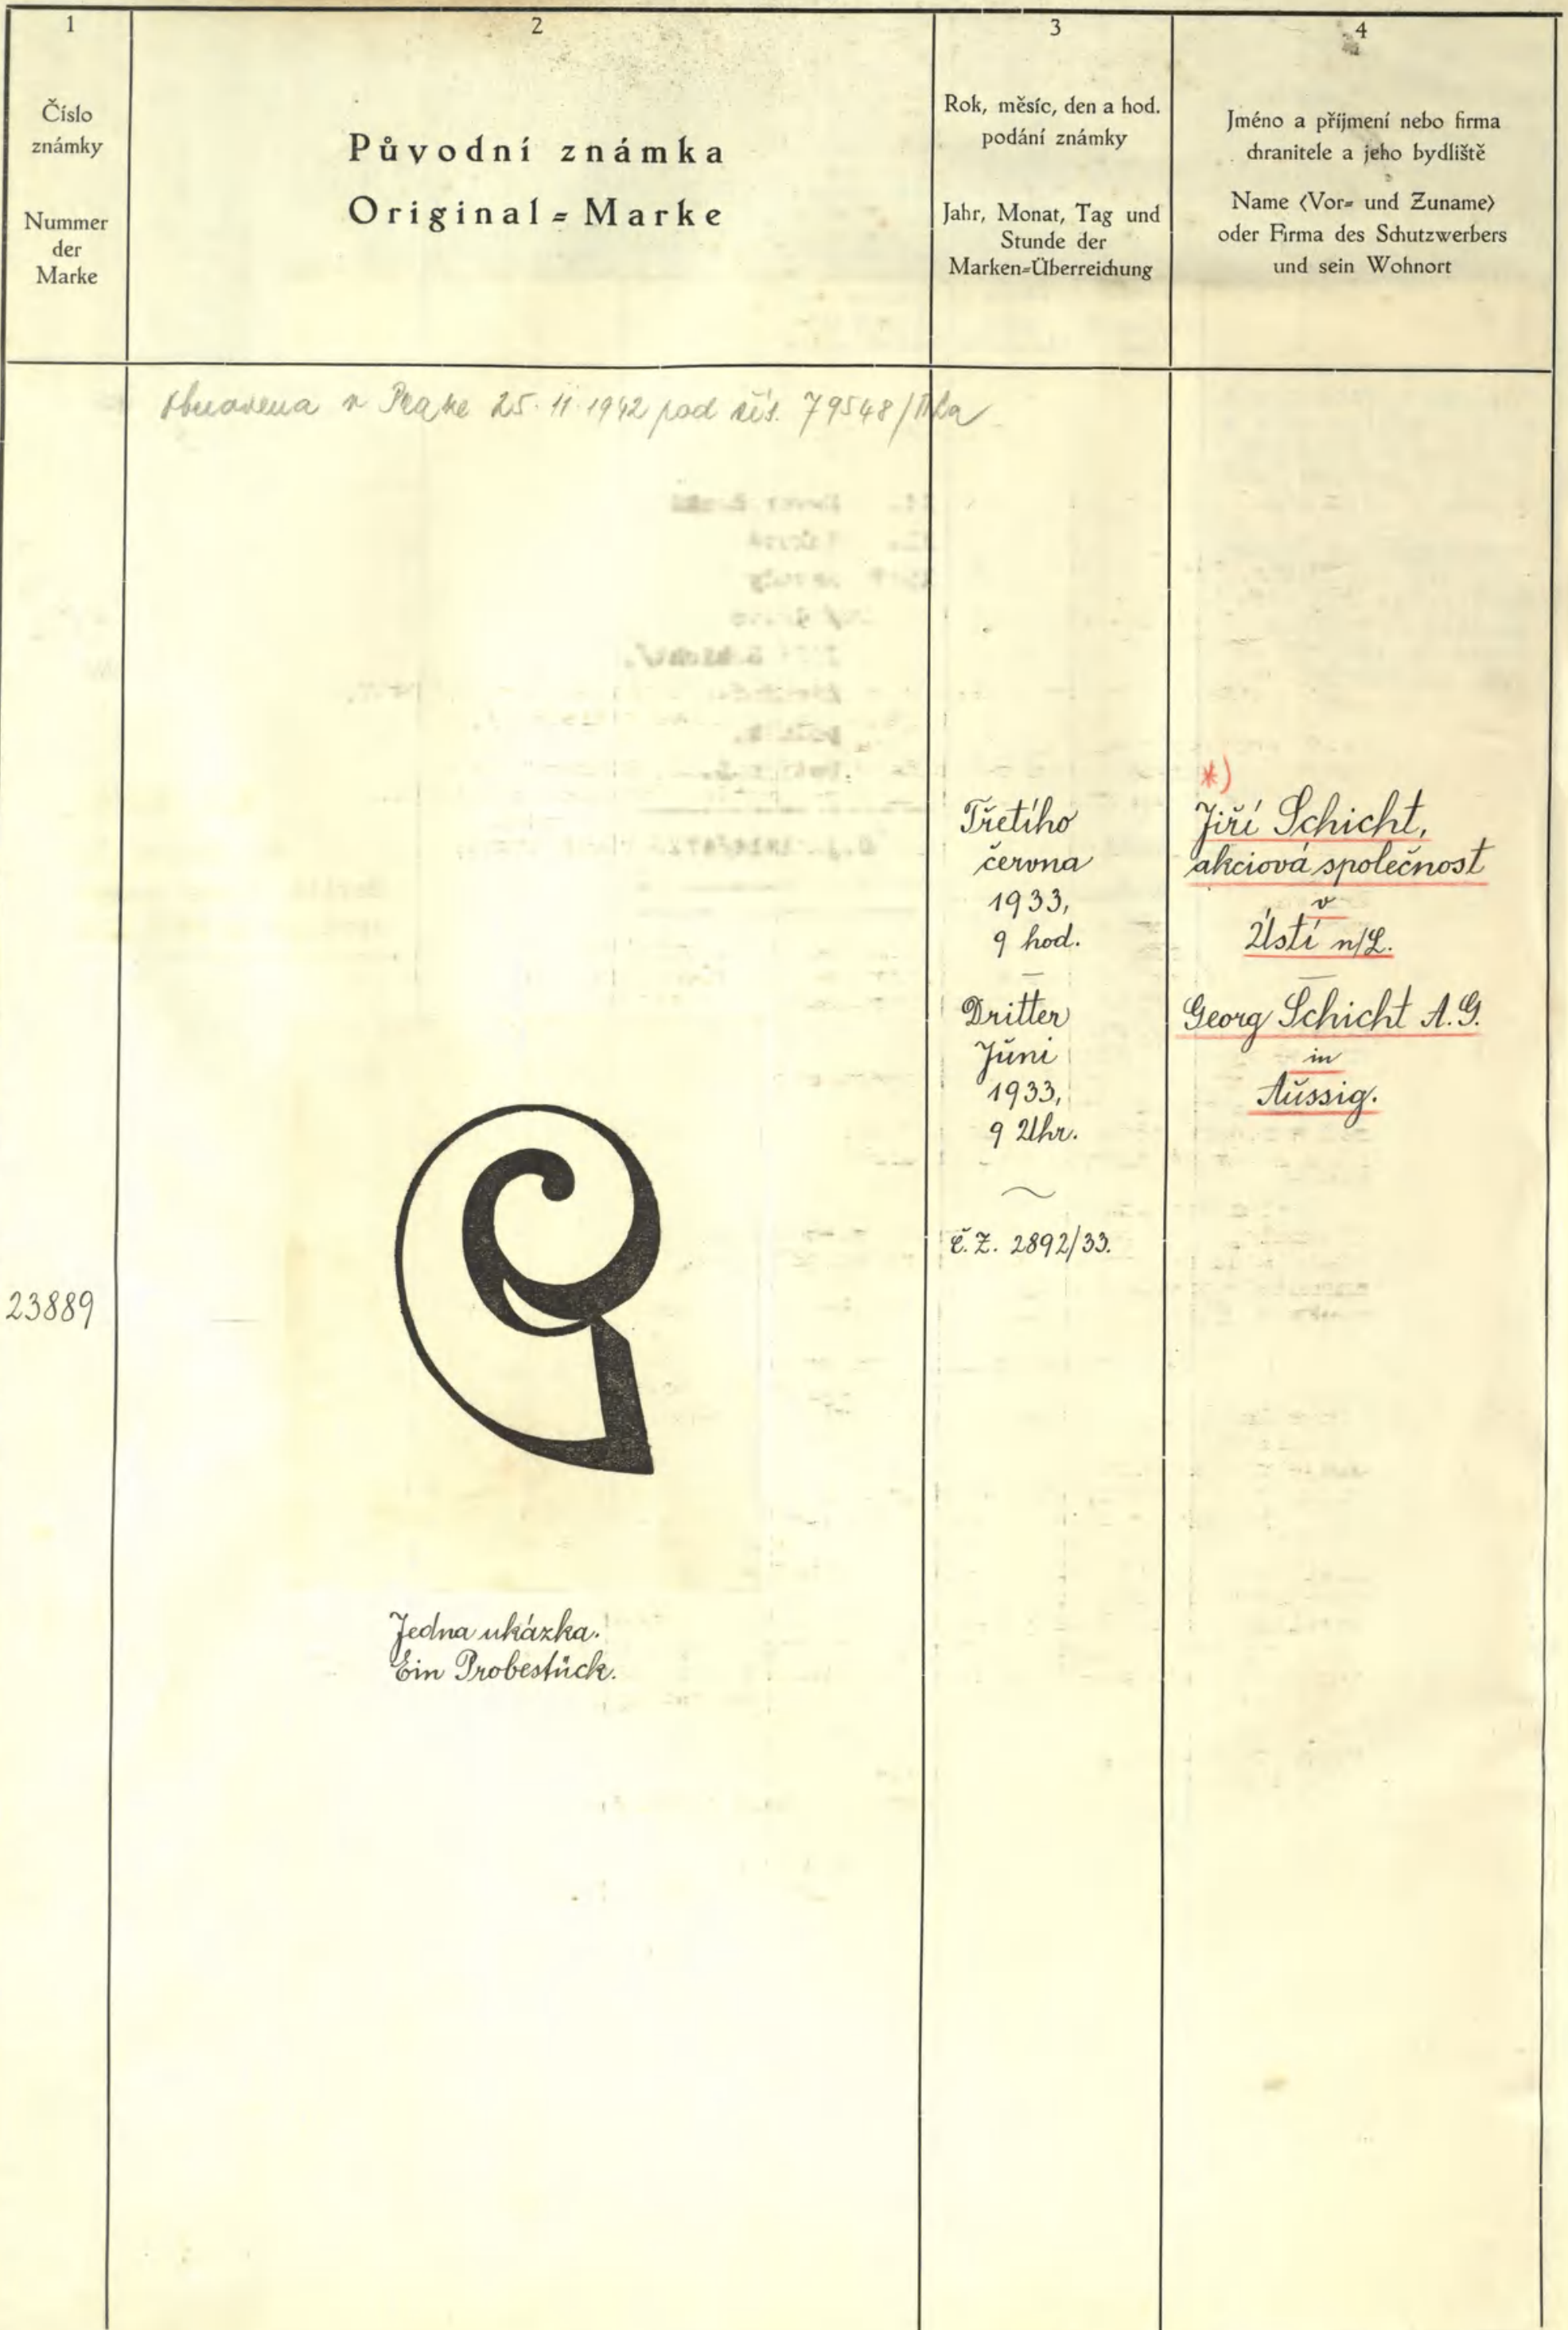 1
Číslo
známky
Nummer
der
Marke
2
Původní známka
Original=Marke
3
Rok, měsíc, den a hod.
podání známky
Jahr, Monat, Tag und
Stunde der
Marken=Überreichung
4
Jméno a příjmení nebo firma
chranitele a jeho bydliště
Name (Vor= und Zuname)
oder Firma des Schutzwerbers
und sein Wohnort
Obnovena v Praze 25. 11. 1942 pod čís. 79548
23889
Jedna ukázka.
Ein Probestück.
Třetího
června
1933,
9 hod.
Dritter
Juni
1933,
9 Uhr.
č. Z. 2892/33.
*)
Jiří Schicht,
akciová společnost
v
Ústí n/L.
Georg Schicht A.G.
in
Aussig.